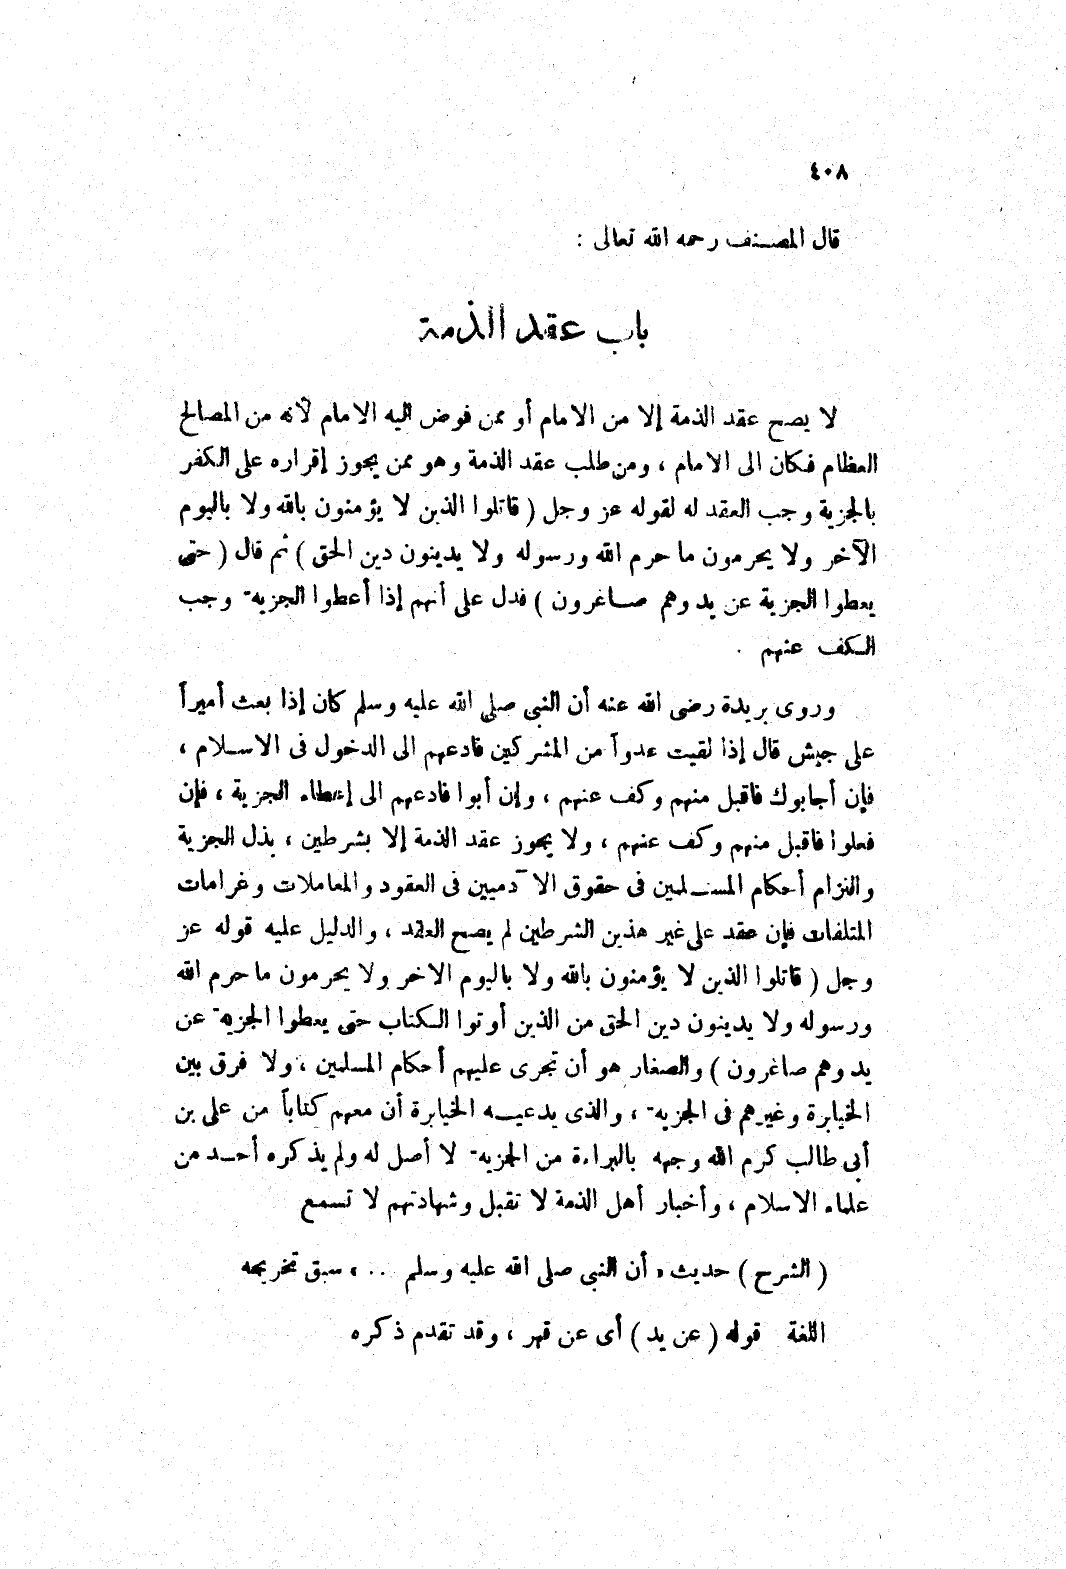 ٤٠٨
قال المصنف رحمه الله تعالى :
باب عقد الذمة
لا يصح عقد الذمة إلا من الامام أو ممن فوض اليه الامام لأنه من المصالح
العظام فكان الى الامام ، ومن طلب عقد الذمة وهو ممن يجوز إقراره على الكفر
بالجزية وجب العقد له لقوله عز وجل ( قاتلوا الذين لا يؤمنون بالله ولا باليوم
الآخر ولا يحرمون ما حرم الله ورسوله ولا يدينون دين الحق ) ثم قال ( حتى
يعطوا الجزية عن يد وهم صاغرون ) فدل على أنهم إذا أعطوا الجزيه وجب
الكف عنهم .
وروى بريدة رضى الله عنه أن النبى صلى الله عليه وسلم كان إذا بعث أميراً
على جيش قال إذا لقيت عدواً من المشركين فادعهم الى الدخول فى الاسلام ،
فإن أجابوك فاقبل منهم وكف عنهم ، وإن أبوا فادعهم الى إعطاء الجزية ، فإن
فعلوا فاقبل منهم وكف عنهم ، ولا يجوز عقد الذمة إلا بشرطين ، بذل الجزية
والتزام أحكام المسلمين فى حقوق الآدميين فى العقود والمعاملات وغرامات
المتلفات فإن عقد على غير هذين الشرطين لم يصح العقد ، والدليل عليه قوله عز
وجل ( قاتلوا الذين لا يؤمنون بالله ولا باليوم الاخر ولا يحرمون ما حرم الله
ورسوله ولا يدينون دين الحق من الذين أوتوا الكتاب حتى يعطوا الجزيه عن
يد وهم صاغرون ) والصغار هو أن تجرى عليهم أحكام المسلمين ، ولا فرق بين
الخيابرة وغيرهم فى الجزيه ، والذى يدعيه الخيابرة أن معهم كتاباً من على بن
أبى طالب كرم الله وجهه بالبراءة من الجزيه لا أصل له ولم يذكره أحد من
علماء الاسلام ، وأخبار أهل الذمة لا تقبل وشهادتهم لا تسمع
( الشرح ) حديث « أن النبى صلى الله عليه وسلم ... ، سبق تخريجه
اللغة قوله ( عن يد ) أى عن قهر ، وقد تقدم ذكره